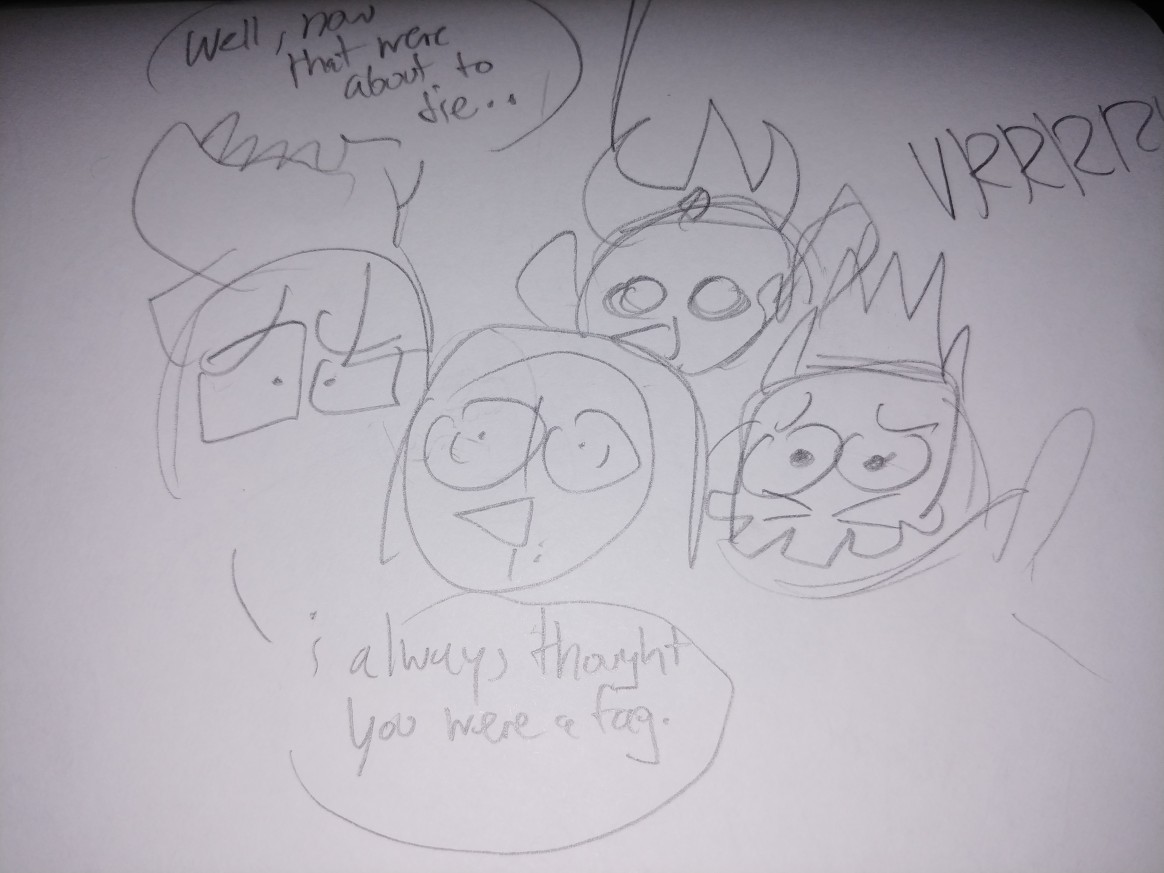 Well, now
that were
about to
die..
VRRRR
i always thought
you were a fag.